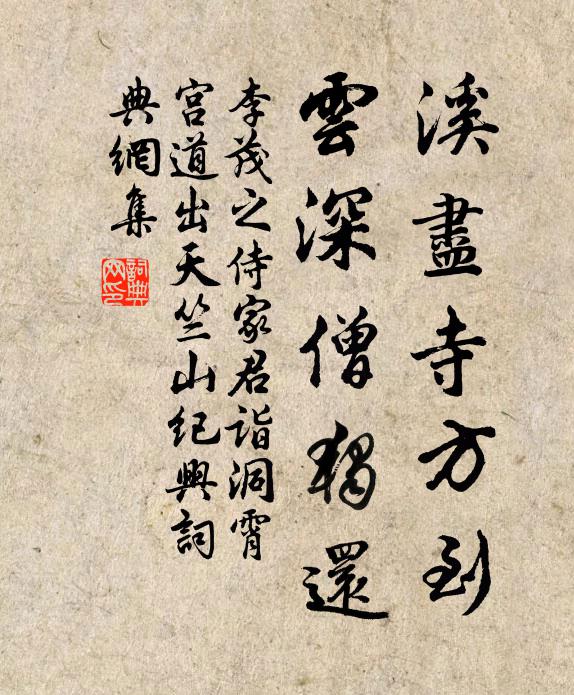 溪盡寺方到
雲深僧獨還
李茂之侍家君詣洞霄
宮道出天竺山紀興詞
典網集
詞典
网印